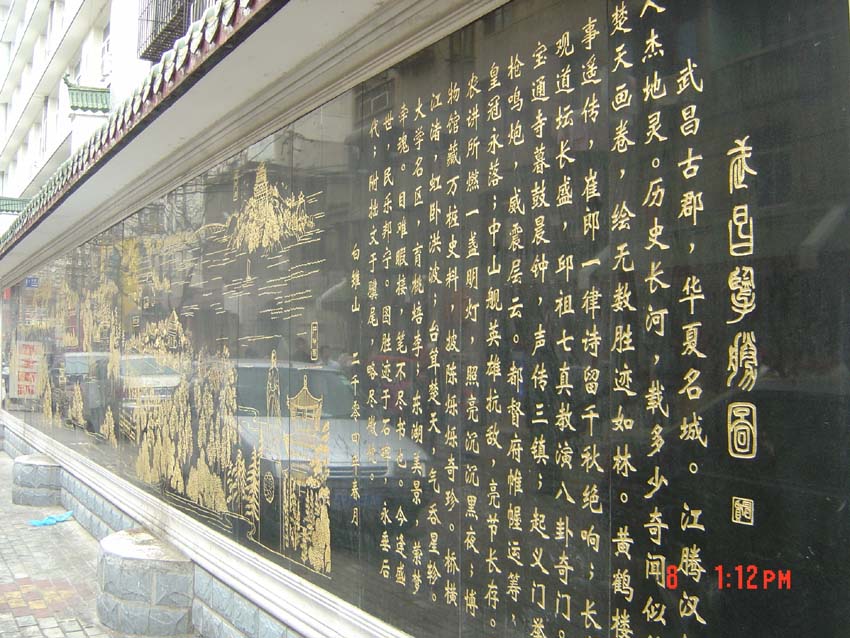 武昌擥勝圖
武昌古郡，华夏名城。江腾汉
人杰地灵。历史长河，载多少奇闻似
楚天画卷，绘无数胜迹如林。黄鹤楼
事遥传，崔郎一律诗留千秋绝响；长
观道坛长盛，邱祖七真教演八卦奇门。
宝通寺暮鼓晨钟，声传三镇；起义门举
枪鸣炮，威震层云。都督府帷幄运筹，
皇冠永落；中山舰英雄抗敌，亮节长存。
农讲所燃一盏明灯，照亮沉沉黑夜；博
物馆藏万桩史料，披陈烁烁奇珍。桥横
江渚，虹卧洪波；台耸楚天，气吞星轸。
大学名区，育桃培李；东湖美景，萦梦
牵魂。目难暇接，笔不尽书也。今逢盛
世，民乐邦宁。图胜迹于石碑，永垂后
代；附拙文于骥尾，略尽微忱。
白雉山 二千零四年春月
8 1:12PM